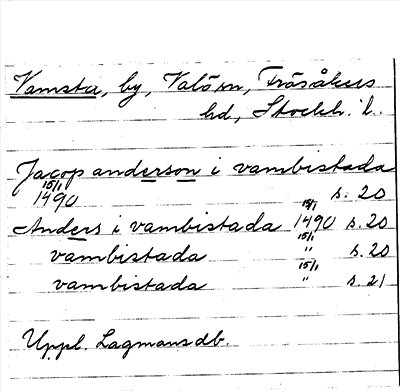 Vamsta, by, Valö sn, Frösåkers
hd, Stockh. l.
Jacop anderson i vambistada
15/1 1490 s. 20
Anders i vambistada 15/1 1490 s. 20
vambistada 15/1 " s. 20
vambistada 15/1 " s. 21
Uppl. Lagmansdb.